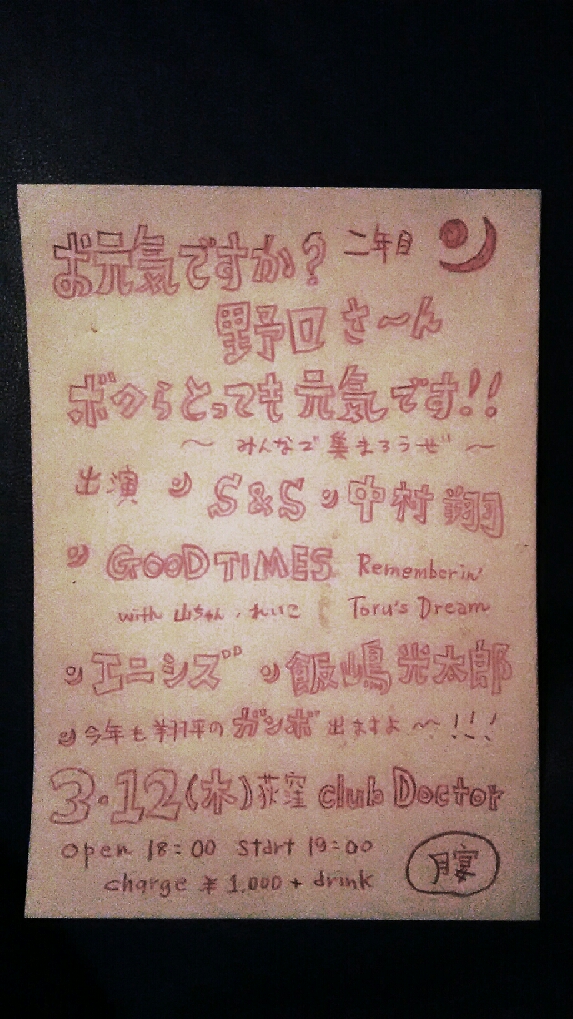 お元気ですか? 二年目
野口さ〜ん
ボクらとっても元気です!!
〜 みんなで集まろうぜ 〜
出演 S&S 中村 翔
GOOD TIMES Rememberin'
with 山ちゃん、れいこ Toru's Dream
エニシズ 飯嶋光太郎
今年も翔平のガンボ出ますよ〜〜!!!
3・12(木)荻窪 club Doctor
open 18:00 start 19:00
charge ¥1,000 + drink
月宴